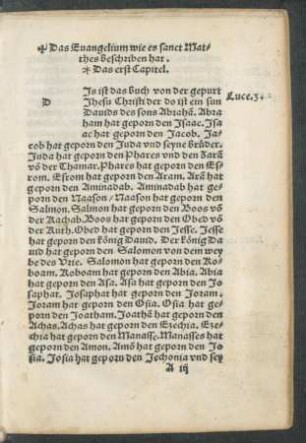 ✢ Das Euangelium wie es sanct Mat-
thes beschriben hat.
✢ Das erst Capitel.
D Is ist das buch von der gepurt
Jhesu Christi der do ist ein sun
Dauids des sons Abrahā. Abra
ham hat geporn den Isaac. Isa
ac hat geporn den Jacob. Ja-
cob hat geporn den Juda vnd seyne brüder.
Juda hat geporn den Phares vnd den Zarā
vō der Thamar. Phares hat geporn den Es
rom. Esrom hat geporn den Aram. Arā hat
geporn den Aminadab. Aminadab hat ge-
porn den Naason/ Naason hat geporn den
Salmon. Salmon hat geporn den Boos vō
der Rachab. Boos hat geporn den Obed vō
der Ruth. Obed hat geporn den Jesse. Jesse
hat geporn den König Dauid. Der König Da
uid hat geporn den Salomon von dem wey
be des Vrie. Salomon hat geporn den Ro-
boam. Roboam hat geporn den Abia. Abia
hat geporn den Asa. Asa hat geporn den Jo
saphat. Josaphat hat geporn den Joram.
Joram hat geporn den Osia. Osia hat ge-
porn den Joatham. Joathā hat geporn den
Achas. Achas hat geporn den Ezechia. Eze-
chia hat geporn den Manasse. Manasses hat
geporn den Amon. Amō hat geporn den Jo
sia. Josia hat geporn den Jechonia vnd sey
A iij
Luce. 3.